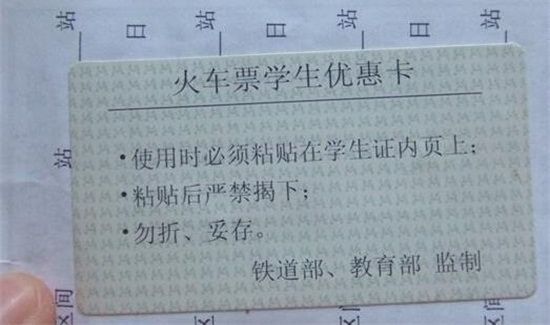 站 站 站 站
日 日 日 日
火车票学生优惠卡
·使用时必须粘贴在学生证内页上；
·粘贴后严禁揭下；
·勿折、妥存。
铁道部、教育部 监制
站
区间